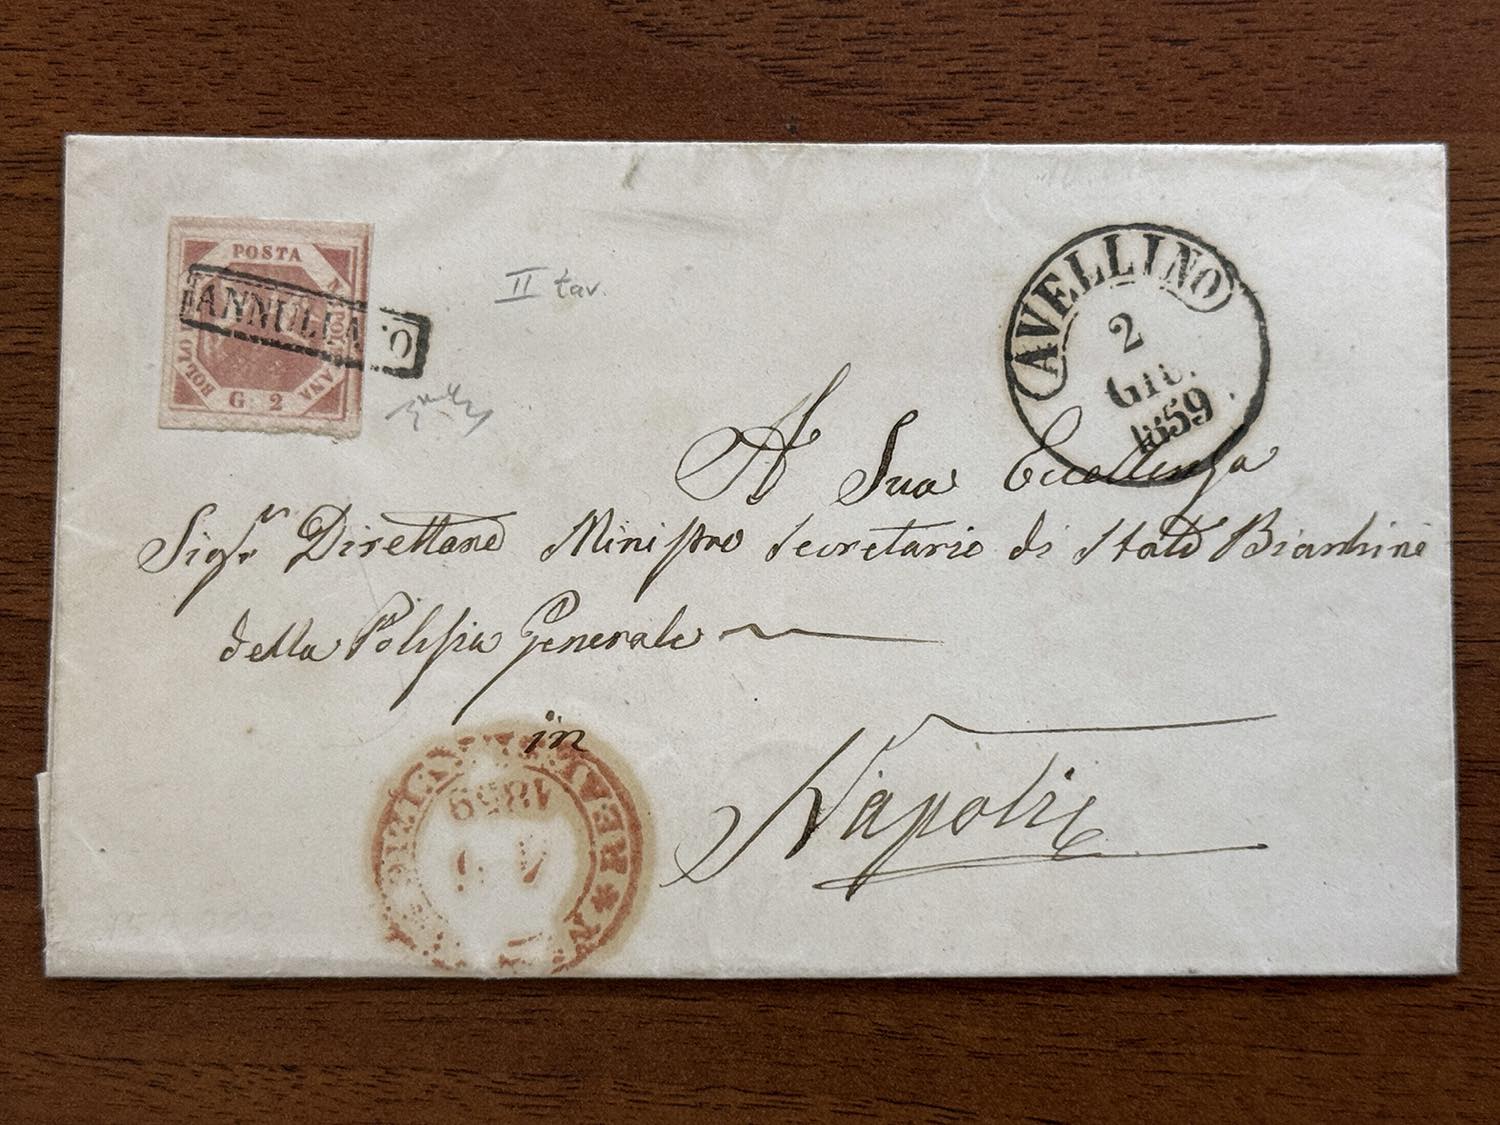 POSTA
NAPOLETANA
BOLLO
G. 2
ANNULLATO
II tav.
AVELLINO
2
GIU.
1859
A Sua Eccellenza
Sigr. Direttore Ministro Segretario di Stato Bianchini
della Polizia Generale
in
Napoli
1859
REALE